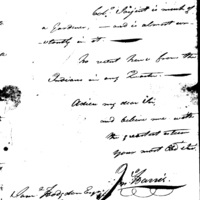 Col. Knight is much of
a Gardener, — and is almost con-
stantly in it —
No recent News from the
Indians in any Quarter
Adieu my dear Sir,
and believe me with
the greatest esteem
your most Obd. St.
Jos. Harris
Sam. Hodgdon Esqr.